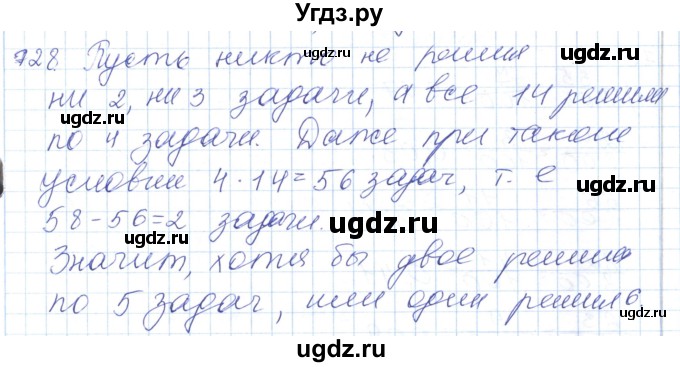 Угдз.ру
728 Пусть никто не решил
ни 2, ни 3 задачи, а все 14 решили
по 4 задачи. Даже при таком
условии 4 · 14 = 56 задач, т. е
58 - 56 = 2 задачи.
Значит, хотя бы двое решили
по 5 задач, или один решил 6.
ugdz.ru
ugdz.ru
ugdz.ru
ugdz.ru
ugdz.ru
ugdz.ru
ugdz.ru
ugdz.ru
ugdz.ru
ugdz.ru
ugdz.ru